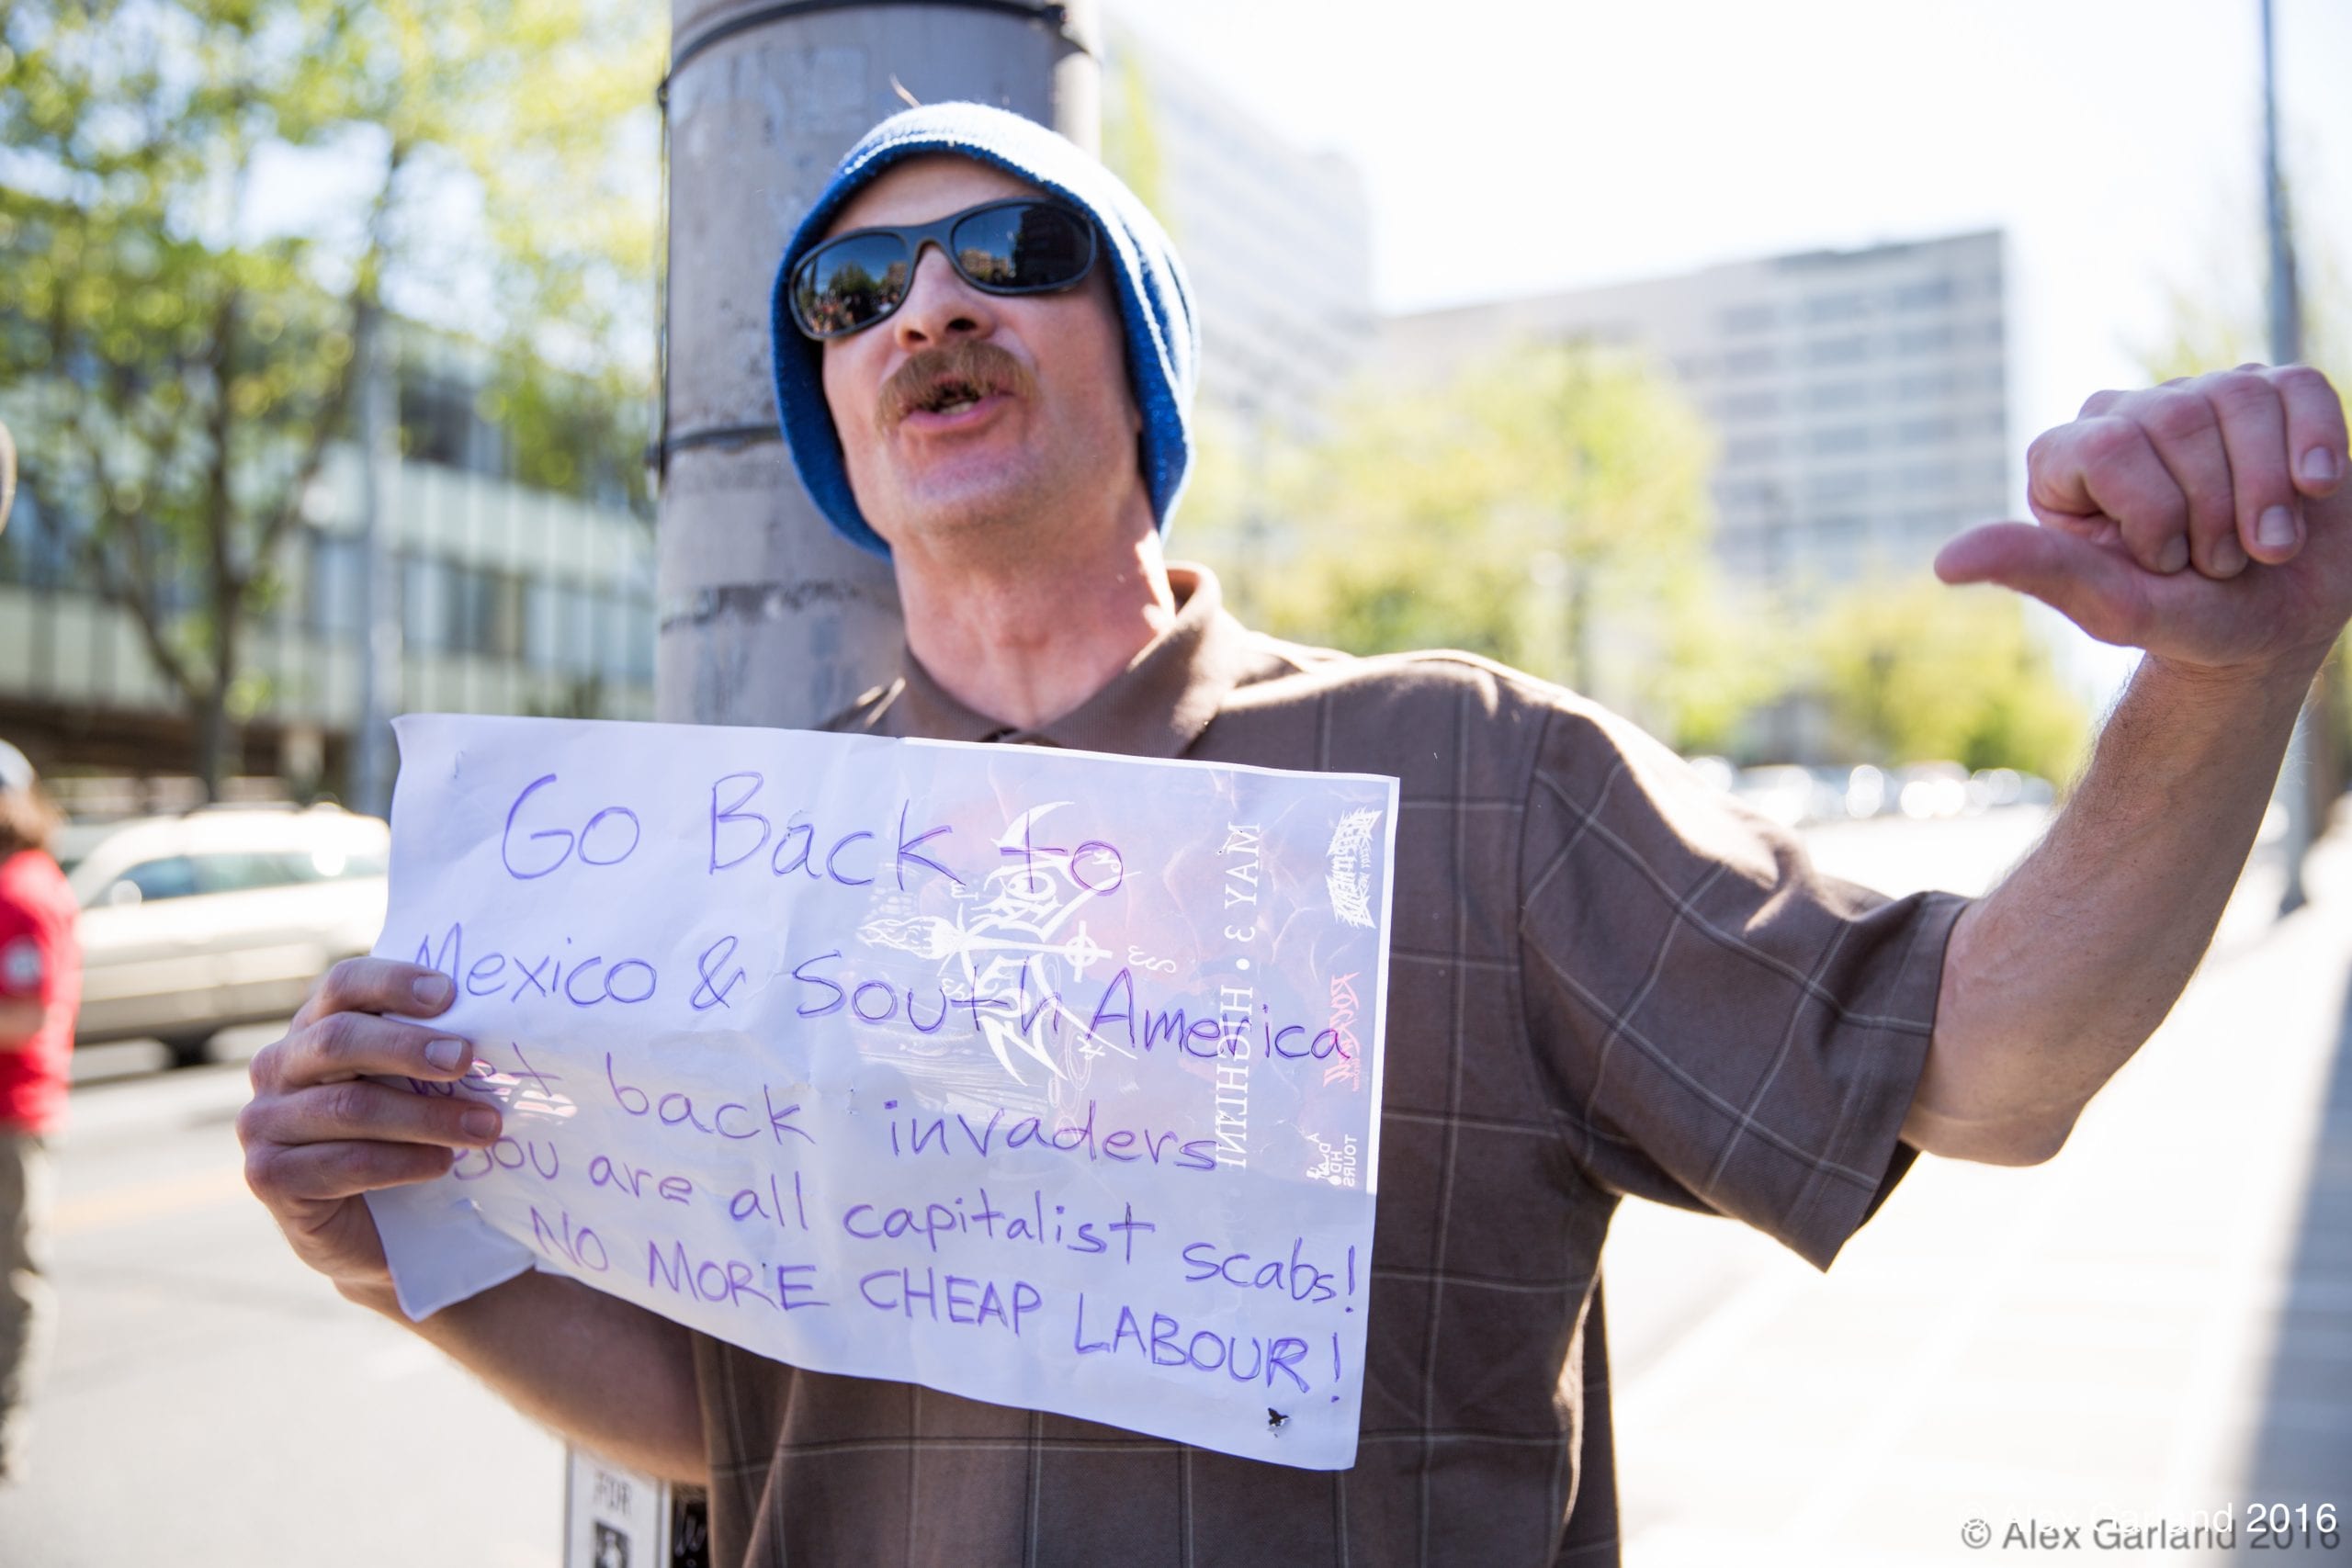 Go Back to
Mexico & South America
wet back invaders
you are all capitalist scabs!
NO MORE CHEAP LABOUR!
MAY 3 • HIGHLINE
TOURS
FOR
© Alex Garland 2016
© Alex Garland 2016